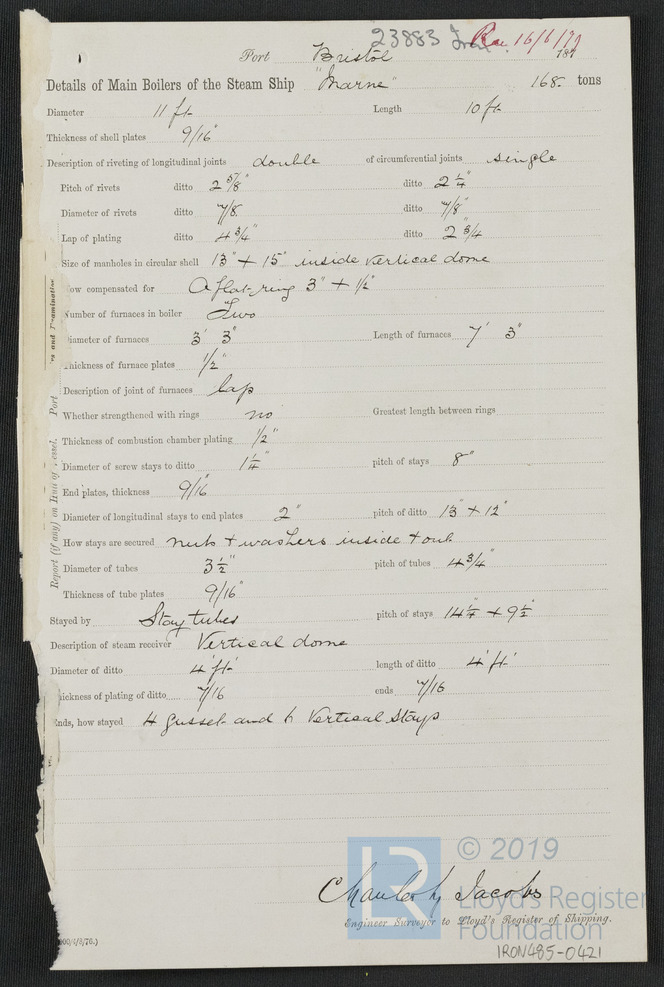 23883 Iron Rec 16/6/79
Port Bristol 787
Details of Main Boilers of the Steam Ship "Marne" 168 tons
Diameter 11 ft Length 10 ft
Thickness of shell plates 9/16"
Description of riveting of longitudinal joints double of circumferential joints single
Pitch of rivets ditto 2 5/8" ditto 2 1/4"
Diameter of rivets ditto 7/8 ditto 7/8"
Lap of plating ditto 4 3/4" ditto 2 3/4
Size of manholes in circular shell 13" + 15" inside vertical dome
How compensated for A flat ring 3" + 1/2"
Number of furnaces in boiler Two
Diameter of furnaces 3' 3" Length of furnaces 7' 3"
Thickness of furnace plates 1/2"
Description of joint of furnaces lap
Whether strengthened with rings no Greatest length between rings
Thickness of combustion chamber plating 1/2"
Diameter of screw stays to ditto 1 1/4" pitch of stays 8"
End plates, thickness 9/16"
Diameter of longitudinal stays to end plates 2" pitch of ditto 13" + 12"
How stays are secured nuts + washers inside + out
Diameter of tubes 3 1/2" pitch of tubes 4 3/4"
Thickness of tube plates 9/16"
Stayed by Stay tubes pitch of stays 14 1/4" + 9 1/2"
Description of steam receiver Vertical dome
Diameter of ditto 4 ft length of ditto 4 ft
Thickness of plating of ditto 7/16 ends 7/16
Ends, how stayed 4 gusset and 6 Vertical Stays
Report (if any) on Hull of Vessel. Port
© 2019
LR
Lloyd's Register
Foundation
Charles Jacobs
Engineer Surveyor to Lloyd's Register of Shipping.
IRON485-0421